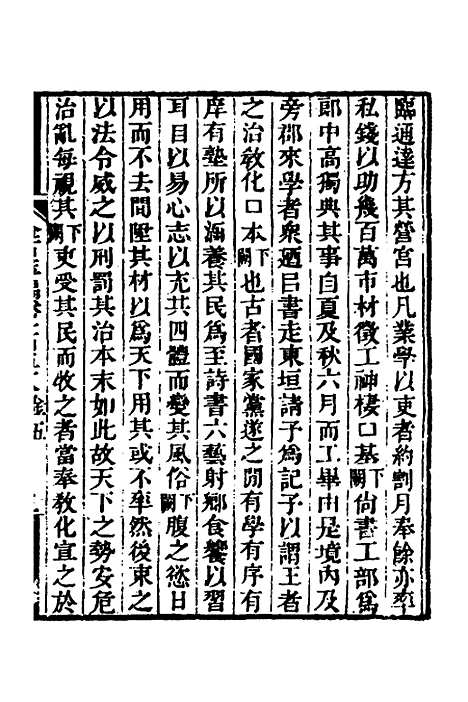 臨通達方其營宮也凡業學以吏者約割月奉餘亦率
私錢以助幾百萬市材徵工神棲口基下闕尙書工部爲
郞中高獨典其事自夏及秋六月而工畢由是境內及
旁郡來學者衆迺曰書走東垣請予爲記予以謂王者
之治敎化口本下闕也古者國家黨遂之閒有學有序有
庠有塾所以涵養其民爲至詩書六藝射鄉食饗以習
耳目以易心志以充其四體而變其風俗下闕腹之慾日
用而不去閒墮其材以爲天下用其或不率然後束之
以法令威之以刑罰其治本末如此故天下之勢安危
治亂每視其下闕吏受其民而牧之者當奉敎化宣之於